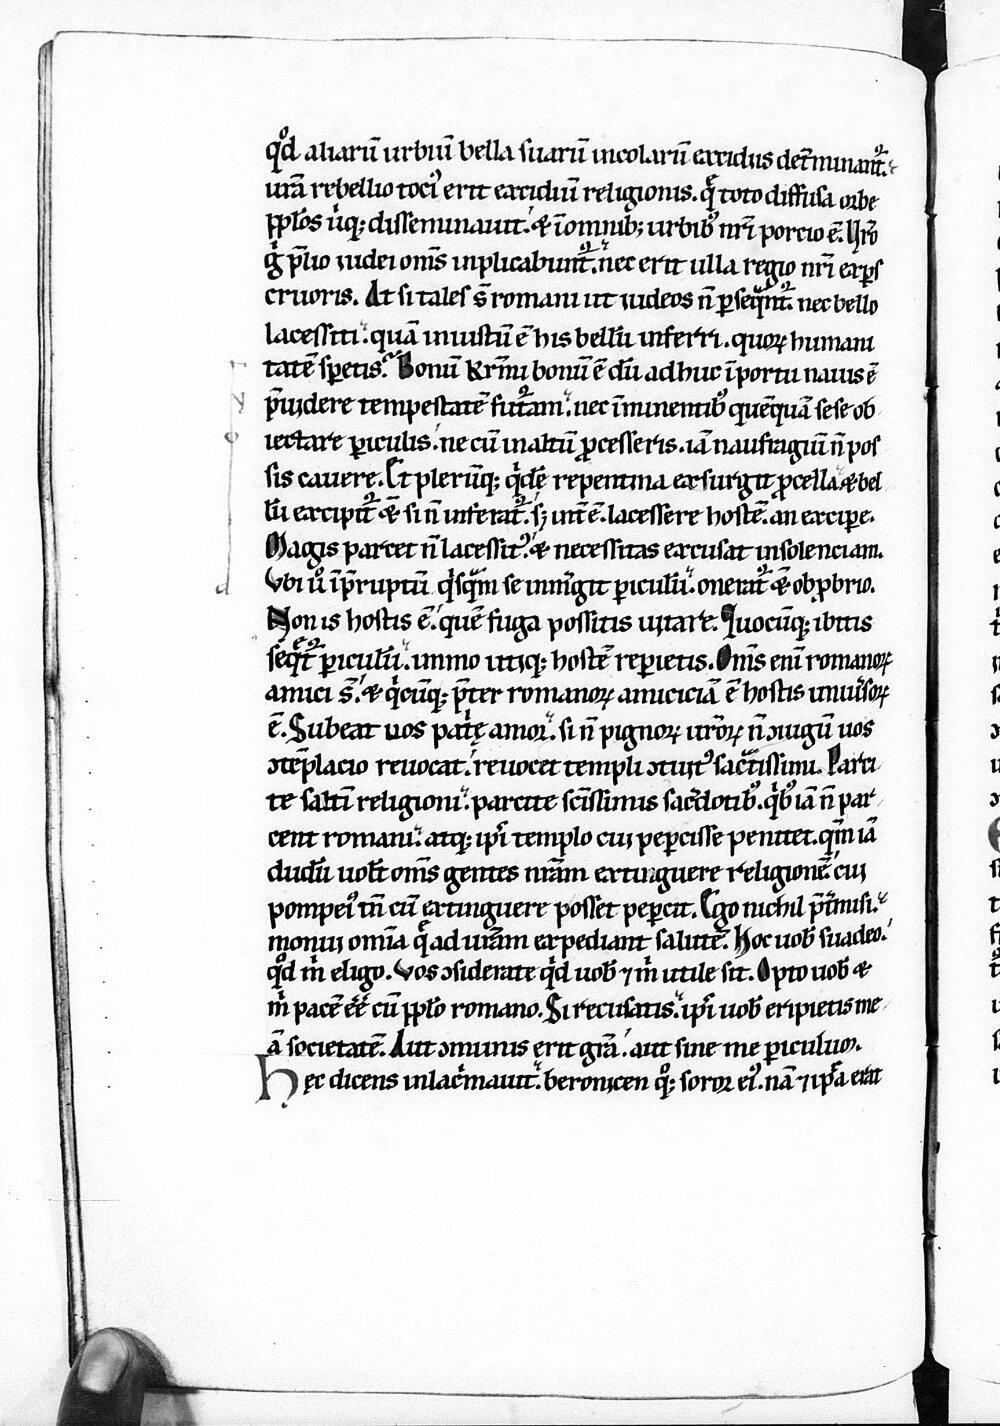 qͦd aliarū urbiū bella suarū incolarū excidiis det̄minant᷒.
urā rebellio toci᷒ erit excidiū religionis. q̄ toto diffusa orbe
pp̄los ūq; disseminauit. & īomnib; urbib᷒ nr̄i porcio ē. Ur̄o
gͥ p̄lio iudei om̄s inplicabunt᷒. nec erit ulla regio nr̄i exp̄s
cruoris. At si tales s̄ romani ut iudeos n̄ ꝑseqͣnt᷒. nec bello
lacessiti. quā iniustū ē his bellū inferri. quoꝝ humani
tatē spetis. Bonū kr̄mi bonū ē dū adhuc īportu nauis ē
p̄uidere tempestatē fut᷒am. nec īminentib᷒ quēquā sese ob
iectare ꝑiculis. ne cū inaltū ꝓcesseris. iā naufragiū n̄ pos
sis cauere. Et plerūq; qͥdē repentina exsurgit ꝓcella & bel
lū excipit᷒ & si n̄ inferat᷒. sꝫ int̄ ē. lacessere hostē. an excipe.
Magis parcet n̄ lacessit᷒. & necessitas excusat insolenciam.
Vbi uͦ īp̄ruptū qͥsqͣm se inm̄git ꝑiculū. onerat᷒ & obꝓbrio.
Non is hostis ē. quē fuga possitis uitare. Quocūq; ibitis
seqͥt᷒ ꝑiculū. immo utiq; hostē reꝑietis. Om̄s eni romanoꝝ
amici s̄. & qͥcūq; p̄ter romanoꝝ amiciciā ē hostis uniu̓soꝝ
ē. Subeat uos pat̓ę amor. si n̄ pignoꝝ ur̄oꝝ n̄ ↄiugū uos
ↄtēplacio reuocat. reuocet templi ↄtuit᷒ sac̄tissimi. Parci
te saltī religioni. parcite sc̄issimis sac̄dotib᷒. qͥb᷒ iā n̄ par
cent romani. atq; ip̄i templo cui peꝑcisse penitet. qm̄ iā
dudū uob̄ om̄s gentes nr̄am extinguere religionē cui
pompei᷒ tn̄ cū extinguere posset peꝑcit. Ego nichil p̄t̓misi.
monui omīa q̄ ad ur̄am expediant salutē. Hoc uob̄ suadeo.
qͦd m̄ eligo. Vos ↄsiderate qͥd uob̄ ⁊ m̄ utile sit. Opto uob̄ &
m̄ pacē e͞e cū pp̄lo romano. Si recusatis. ip̄i uob̄ eripietis me
ā societatē. Aut ↄmunis erit gr̄a. aut sine me ꝑiculum.
Hec dicens inlac̓mauit. beronicen qͦ; soror ei᷒. nā ⁊ ip̄a erat